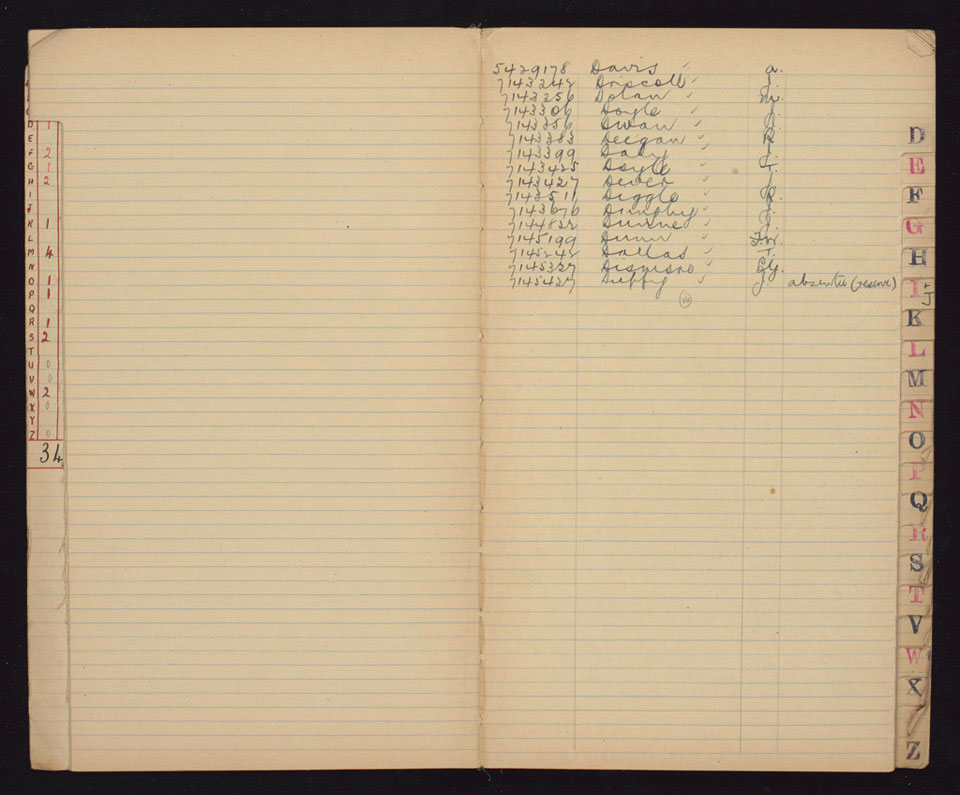 D 1
E
F 2
G 1
H 2
I
J
K 1
L
M 4
N
O 1
P 1
Q
R 1
S 2
T
U 0
V 0
W 2
X 0
Y
Z 0
34
5429178 Davis ✓ a.
7143248 Driscoll ✓ J.
7143256 Dolan ✓ M.
7143306 Doyle ✓ J.
7143356 Dwan ✓
7143383 Deegan ✓ R
7143399 Daly ✓ J.
7143425 Doyle ✓ T.
7143427 Dever ✓ J.
7143511 Diggle ✓ R.
7143676 Dunphy ✓ J.
7144822 Dunne ✓ J.
7145199 Dunn ✓ F.W.
7145242 Dallas ✓ T.
7145327 ✓
7145427 Duffy ✓ J. absentee (reserve)
16
D
E
F
G
H
I-J
K
L
M
N
O
P
Q
R
S
T
V
W
X
Z